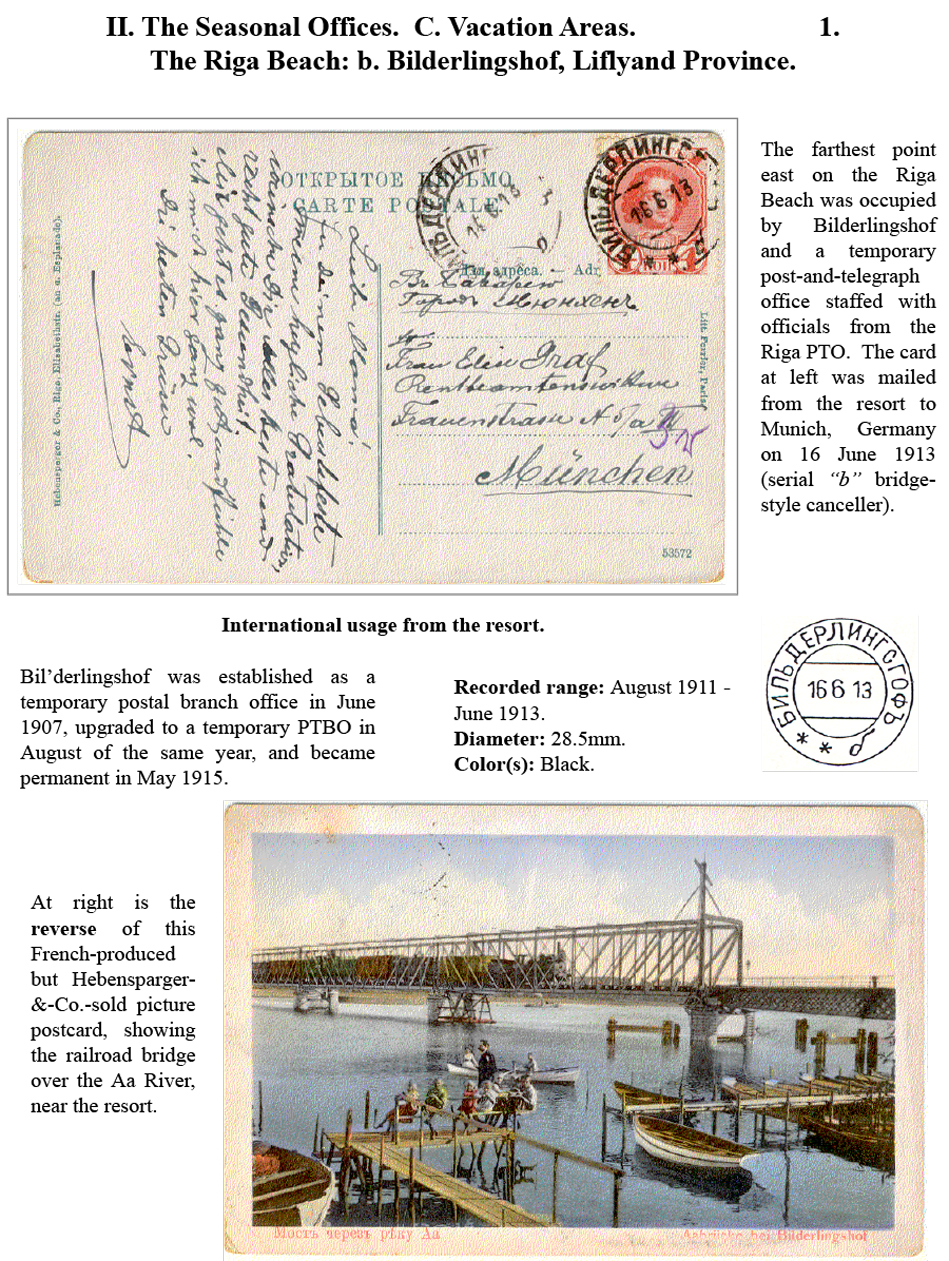 II. The Seasonal Offices. C. Vacation Areas. 1.
The Riga Beach: b. Bilderlingshof, Liflyand Province.
ОТКРЫТОЕ ПИСЬМО
CARTE POSTALE
Hebensperger & Co., Riga, Elisabethstr. (an d. Esplanade).
Liebe Mama!
Zu deinem
herzliche
alles beste und
recht gute Gesundheit
geht es ganz gut und fühle
ich mich hier ganz wohl.
Die besten Grüsse
БИЛЬДЕРЛИНГ
БИЛЬДЕРЛИНГСГ
16 6 13
Для адреса. — Adr
Въ Баварію
Городъ Мюнхенъ
Frau Graf
Rentbeamtenswittwe
Frauenstrasse
München
53572
The farthest point
east on the Riga
Beach was occupied
by Bilderlingshof
and a temporary
post-and-telegraph
office staffed with
officials from the
Riga PTO. The card
at left was mailed
from the resort to
Munich, Germany
on 16 June 1913
(serial “b” bridge-
style canceller).
International usage from the resort.
Bil’derlingshof was established as a
temporary postal branch office in June
1907, upgraded to a temporary PTBO in
August of the same year, and became
permanent in May 1915.
Recorded range: August 1911 -
June 1913.
Diameter: 28.5mm.
Color(s): Black.
БИЛЬДЕРЛИНГСГОФЪ
16 6 13
* * б
At right is the
reverse of this
French-produced
but Hebensparger-
&-Co.-sold picture
postcard, showing
the railroad bridge
over the Aa River,
near the resort.
Мостъ черезъ рѣку Аа
Aabrücke bei Bilderlingshof